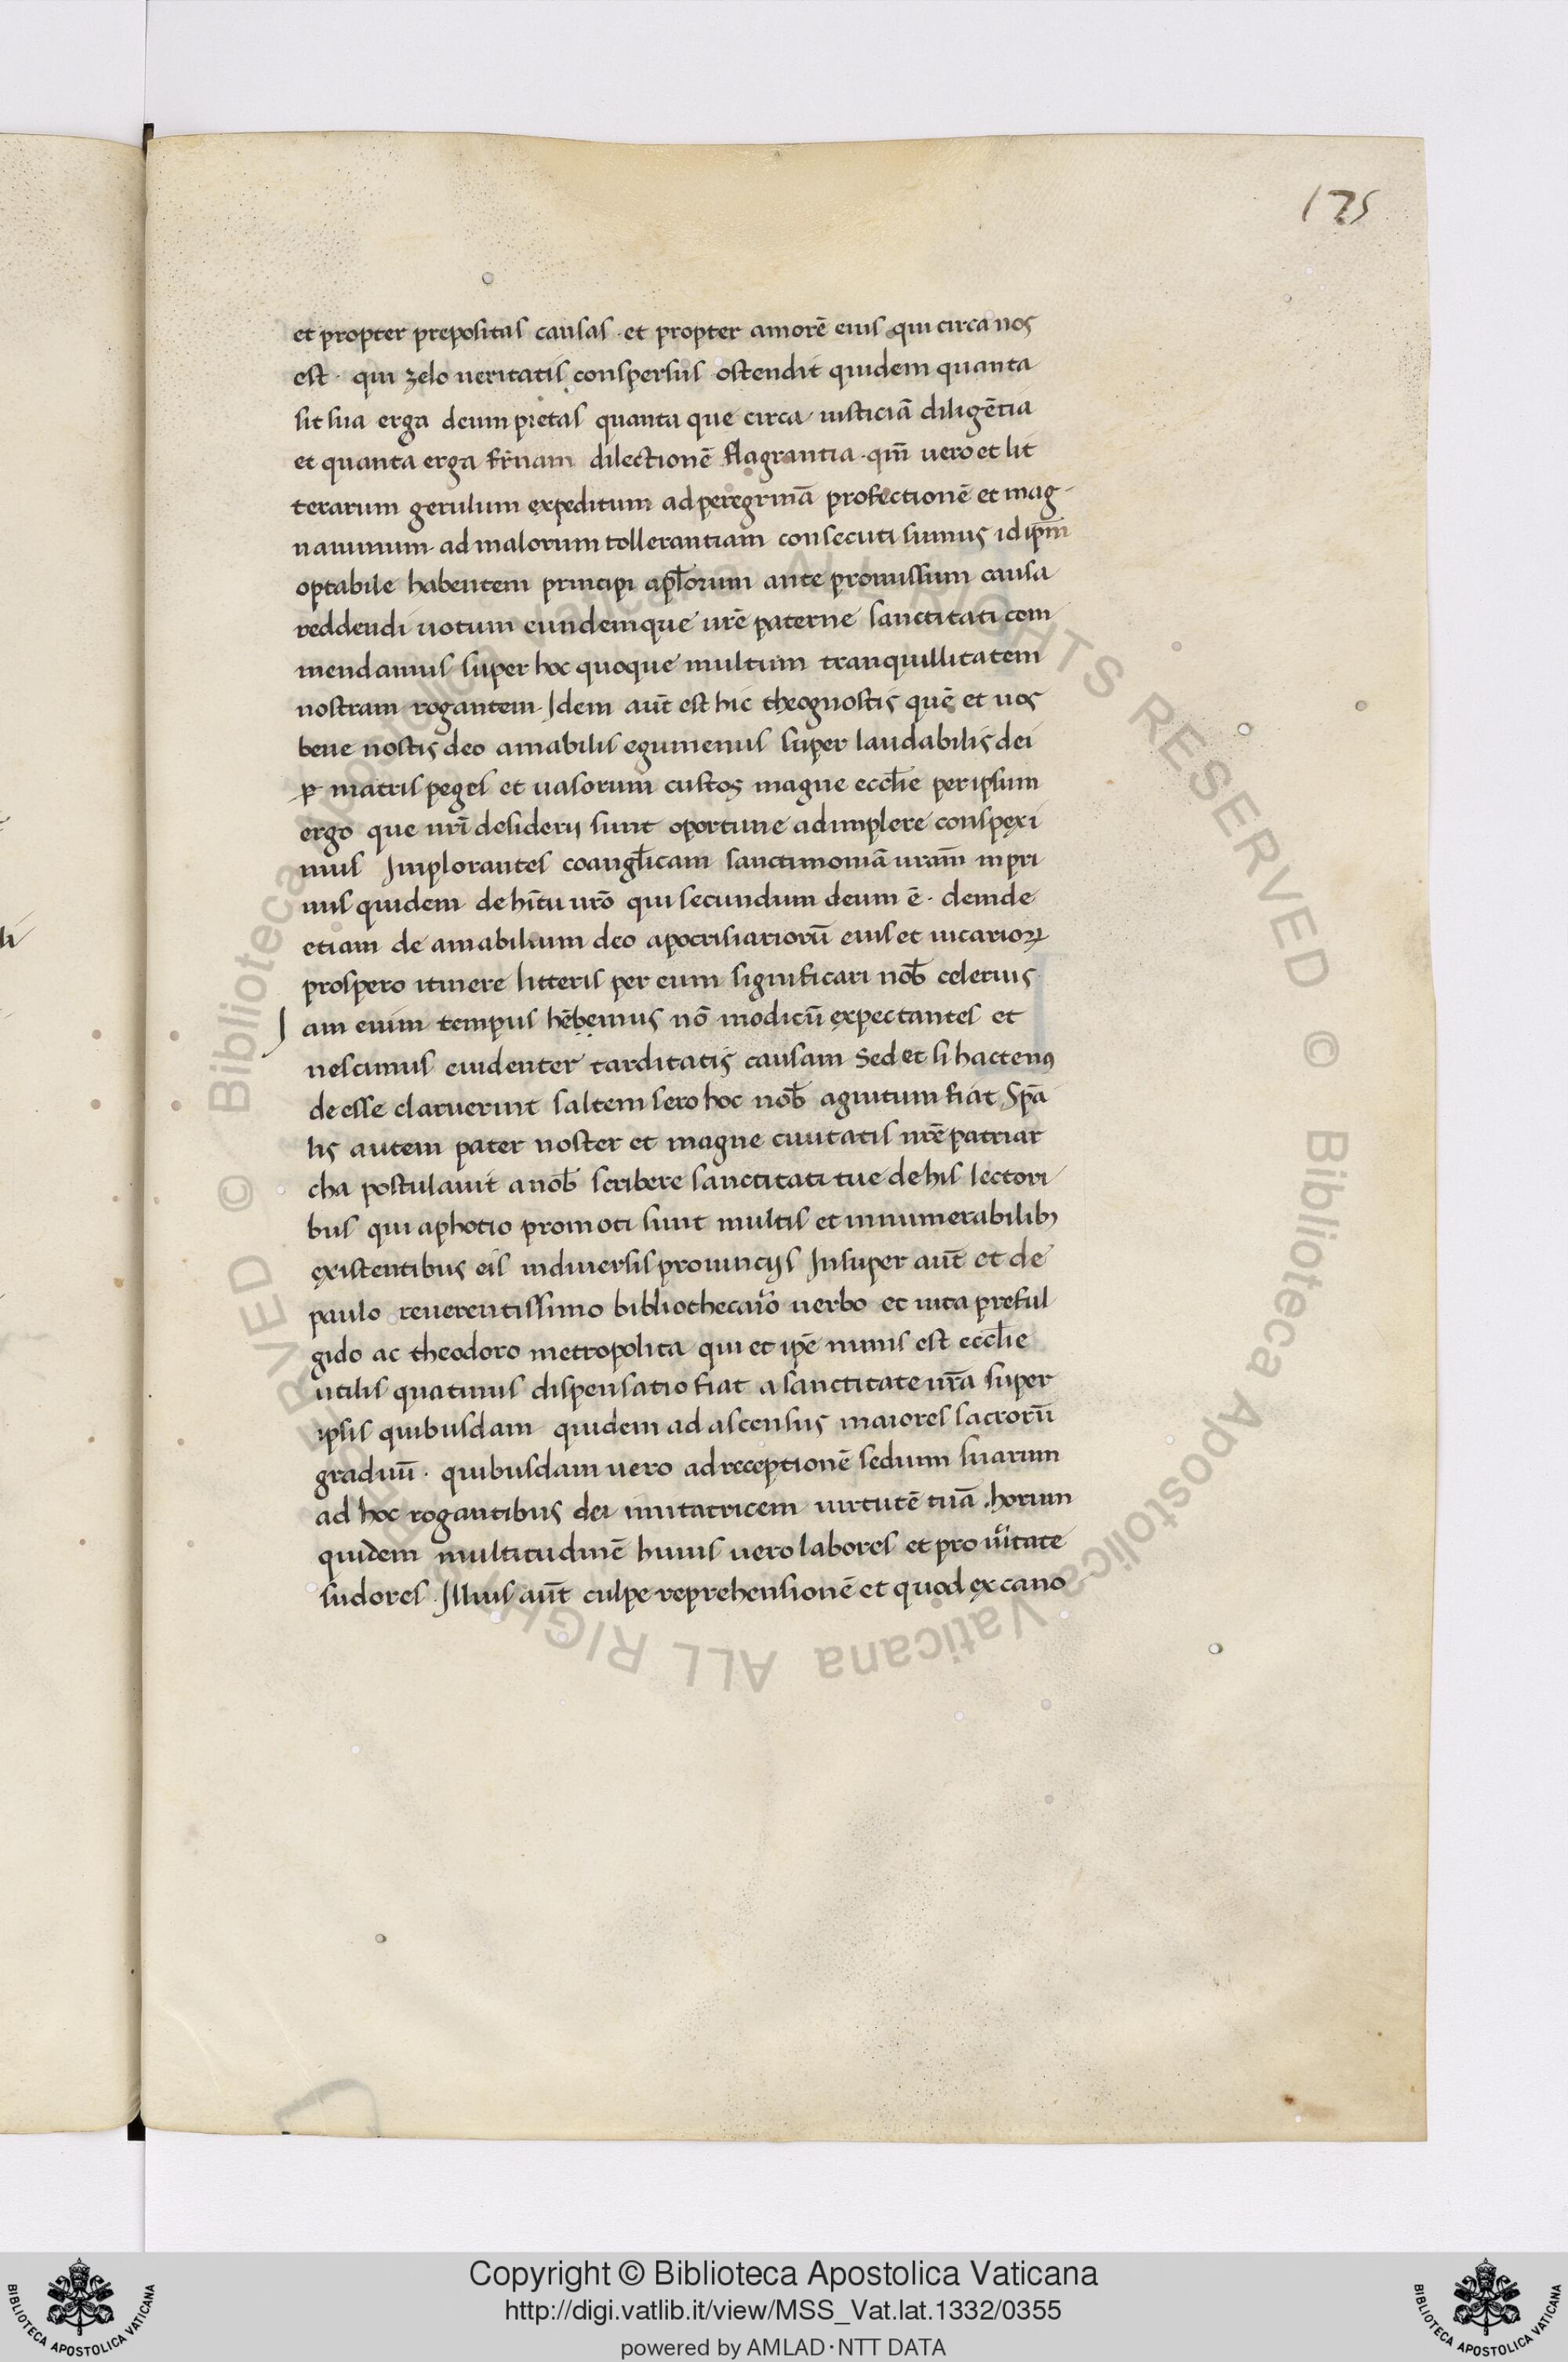 175
et propter prepositas causas · et propter amorē eius qui circa nos
est · qui zelo ueritatis conspersus ostendit quidem quanta
sit sua erga deum pietas quanta que circa iusticiā diligētia
et quanta erga fr̄nam dilectionē flagrantia · qm̄ uero et lit
terarum gerulum expeditum ad peregrinā profectionē et mag
nanimum · ad malorum tollerantiam consecuti sumus id ipm̄
optabile habentem principi apl̄orum ante promissum causa
reddendi uotum eundemque ur̄e paterne sanctitati com
mendamus super hoc quoque multum tranquillitatem
nostram rogantem · Idem aut̄ est hic theognostis quē et uos
bene nostis deo amabilis egumenus super laudabilis dei
ꝑ matris peges et uasorum custos magne eccl̄ie per ipsum
ergo que ur̄i desiderij sunt oportune adimplere conspexi
mus Implorantes coangl̄icam sanctimoniā uram̄ in pri
mis quidem de hītu ur̄o qui secundum deum ē · deinde
etiam de amabilium deo apocrisiariorū eius et uicarioꝝ
prospero itinere litteris per eum significari nob̄ celerius
Iam enim tempus hēbemus nō modicū expectantes et
nescimus euidenter tarditatis causam Sed et si hactenꝰ
de esse claruerint saltem sero hoc nob̄ agnitum fiat Spā
lis autem pater noster et magne ciuitatis nr̄e patriar
cha postulauit a nob̄ scribere sanctitati tue de his lectori
bus qui a photio promoti sunt multis et innumerabilibꝫ
existentibus eis in diuersis prouincijs Insuper aut̄ et de
paulo reuerentissimo bibliothecario uerbo et uita preful
gido ac theodoro metropolita qui et ip̄e nimis est eccl̄ie
utilis quatinus dispensatio fiat a sanctitate ur̄a super
ipsis quibusdam quidem ad ascensus maiores sacrorū
graduū · quibusdam uero ad receptionē sedum suarum
ad hoc rogantibus dei imitatricem uirtutē tuā . horum
quidem multitudinē huius uero labores et pro uītate
sudores . Illius aut̄ culpe reprehensionē et quod ex cano
Copyright © Biblioteca Apostolica Vaticana
http://digi.vatlib.it/view/MSS_Vat.lat.1332/0355
powered by AMLAD·NTT DATA
BIBLIOTECA APOSTOLICA VATICANA
BIBLIOTECA APOSTOLICA VATICANA
© Biblioteca Apostolica Vaticana ALL RIGHTS RESERVED © Biblioteca Apostolica Vaticana ALL RIGHTS RESERVED